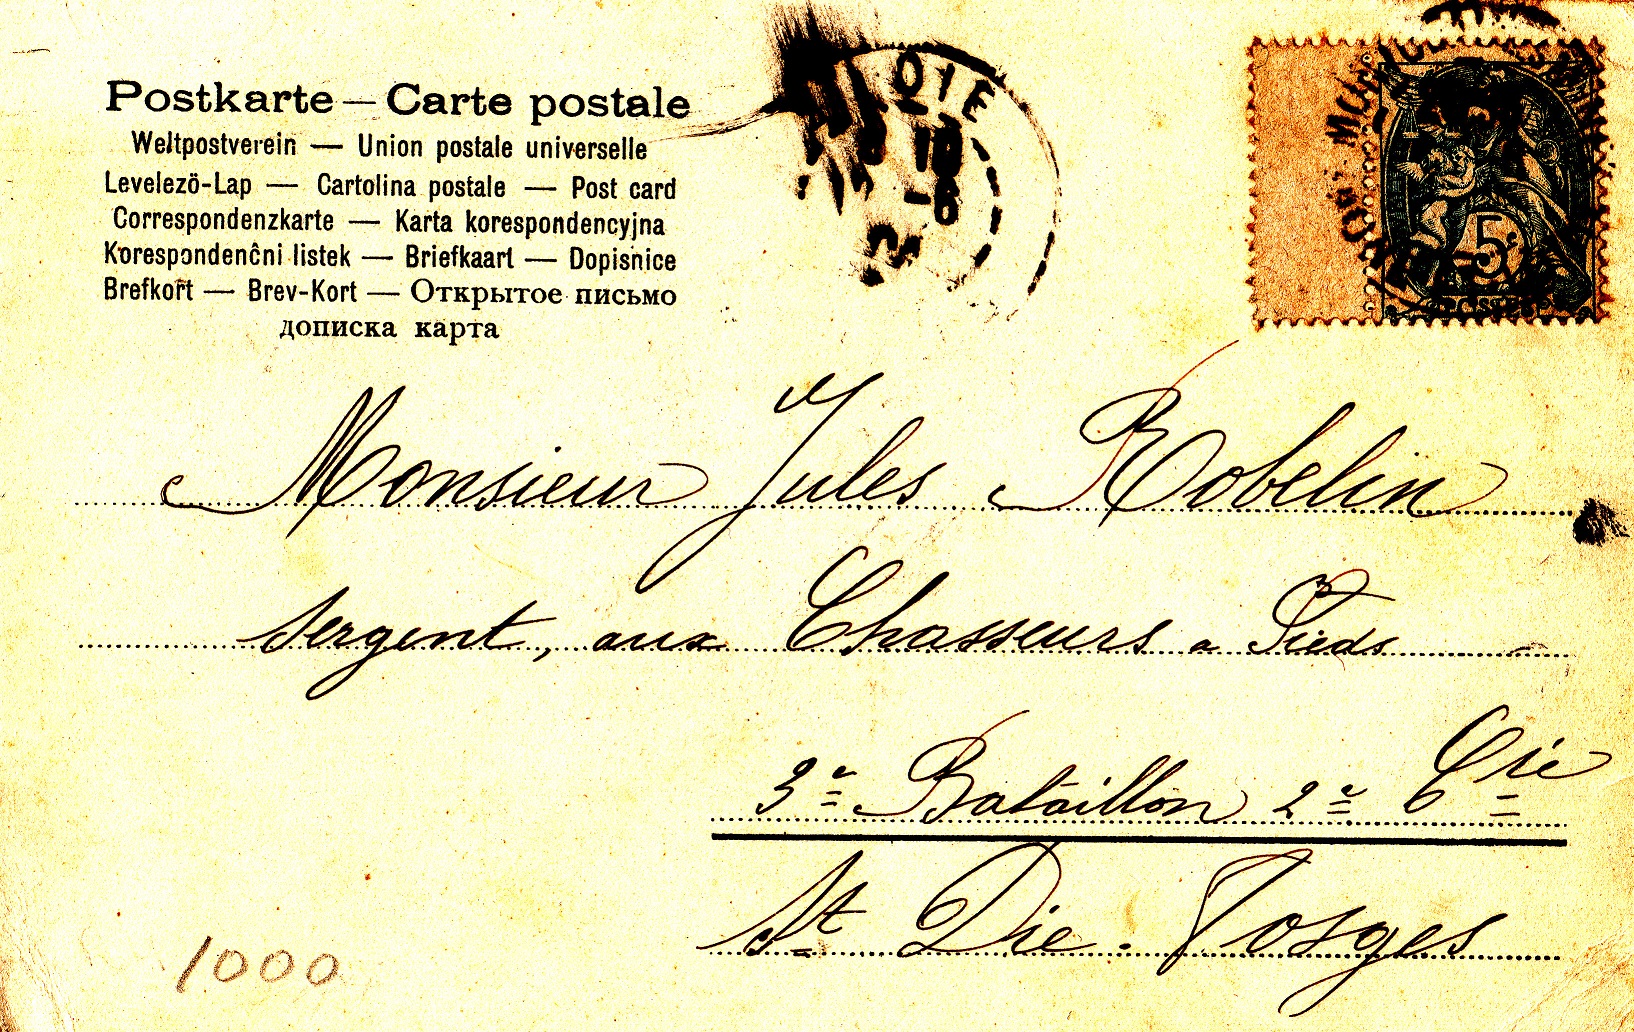 Postkarte — Carte postale
Weltpostverein — Union postale universelle
Levelező-Lap — Cartolina postale — Post card
Correspondenzkarte — Karta korespondencyjna
Korespondenčni listek — Briefkaart — Dopisnice
Brefkort — Brev-Kort — Открытое письмо
дописка карта
OIE
10
-6
5c
Monsieur Jules Robelin
Sergent, aux Chasseurs a Pieds
3e Bataillon 2e Cie
St Die. Vosges
1000